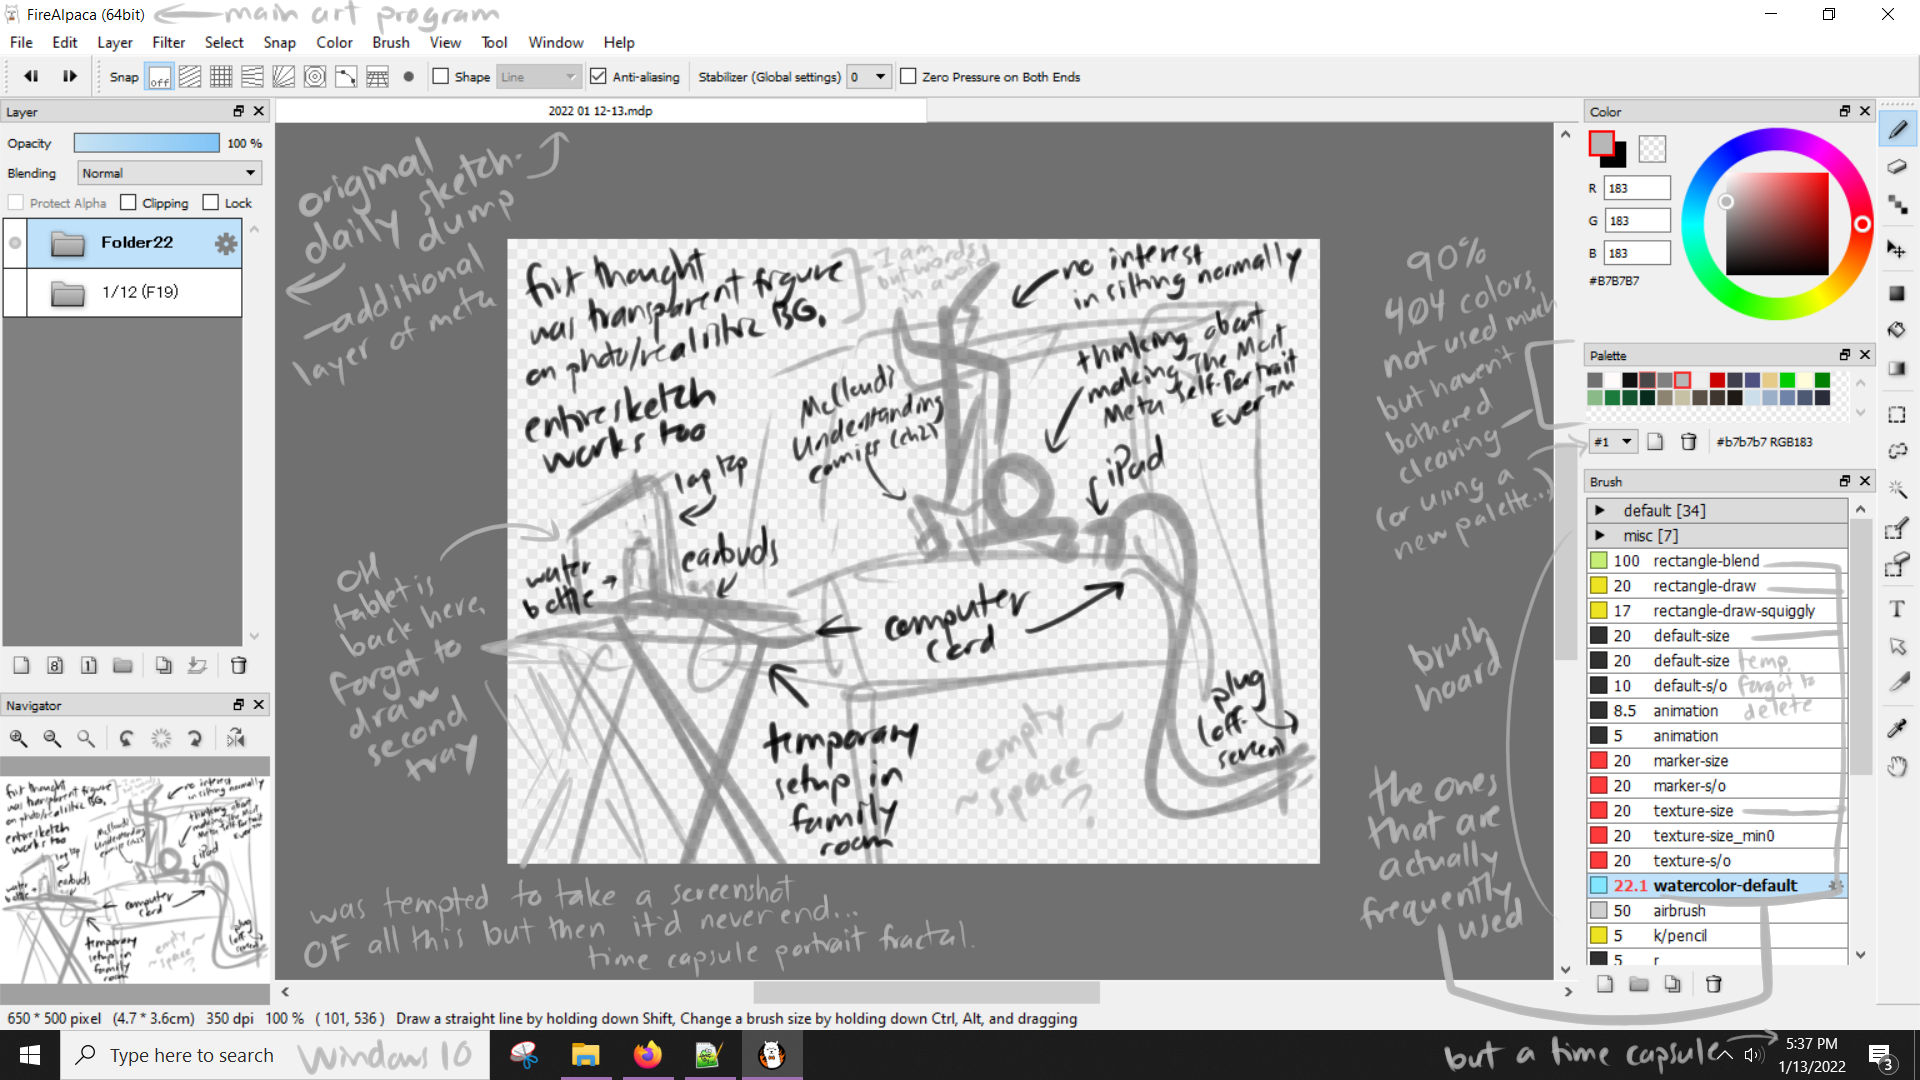 FireAlpaca (64bit)
main art program
File Edit Layer Filter Select Snap Color Brush View Tool Window Help
Snap off Shape Line Anti-aliasing Stabilizer (Global settings) 0 Zero Pressure on Both Ends
Layer
2022 01 12-13.mdp
Color
Opacity 100 %
Blending Normal
Protect Alpha Clipping Lock
Folder22
1/12 (F19)
Navigator
original
daily sketch
dump
additional
layer of meta
OH
tablet is
back here,
forgot to
draw
second
tray
first thought
was transparent figure
on photo/realistic BG.
entire sketch
works too
I am
but words
in a void
no interest
in sitting normally
thinking about
making The Most
Meta Self-Portrait
Ever™
McCloud:
Understanding
comics (ch2)
iPad
laptop
earbuds
water
bottle
computer
cord
temporary
setup in
family
room
empty
~ space ~
?
plug
(off-
screen)
was tempted to take a screenshot
OF all this but then it'd never end...
time capsule portrait fractal.
90%
404 colors,
not used much
but haven't
bothered
clearing
(or using a
new palette...)
brush
hoard
the ones
that are
actually
frequently
used
R 183
G 183
B 183
#B7B7B7
Palette
#1 #b7b7b7 RGB183
Brush
default [34]
misc [7]
100 rectangle-blend
20 rectangle-draw
17 rectangle-draw-squiggly
20 default-size
20 default-size
10 default-s/o
8.5 animation
5 animation
20 marker-size
20 marker-s/o
20 texture-size
20 texture-size_min0
20 texture-s/o
22.1 watercolor-default
50 airbrush
5 k/pencil
5 r
temp,
forgot to
delete
T
650 * 500 pixel (4.7 * 3.6cm) 350 dpi 100 % ( 101, 536 ) Draw a straight line by holding down Shift, Change a brush size by holding down Ctrl, Alt, and dragging
Type here to search
Windows 10
but a time capsule
5:37 PM
1/13/2022
3